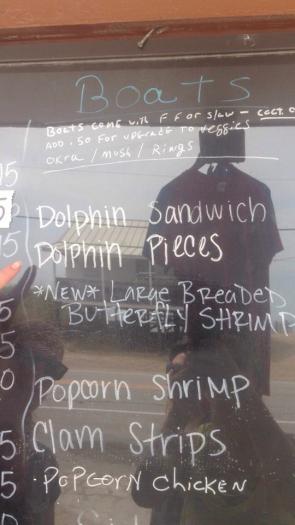 Boats
Boats come with F F or slaw -
ADD .50 For upgrade to veggies
okra / mush / Rings
Dolphin Sandwich
Dolphin Pieces
*NEW* Large Breaded
Butterfly Shrimp
Popcorn Shrimp
Clam Strips
· Popcorn Chicken